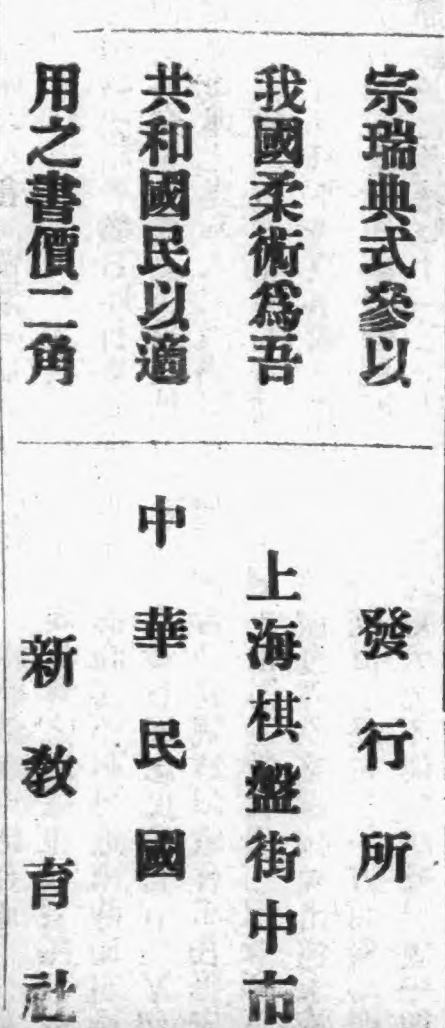 宗瑞典式參以
我國柔術爲吾
共和國民以適
用之書價二角
發行所
上海棋盤街中市
中華民國
新教育社